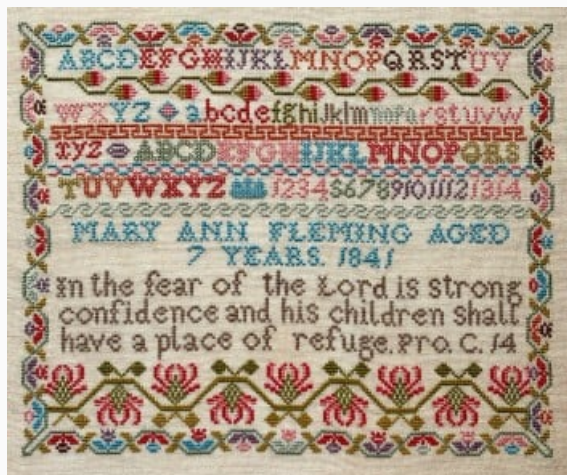 ABCDEFGHIJKLMNOPQRSTUV
WXYZ abcdefghijklmnopqrstuvw
xyz ABCDEFGHIJKLMNOPQRS
TUVWXYZ 1234567891011121314
MARY ANN FLEMING AGED
7 YEARS. 1841
In the fear of the Lord is strong
confidence and his children shall
have a place of refuge. Pro. C. 14